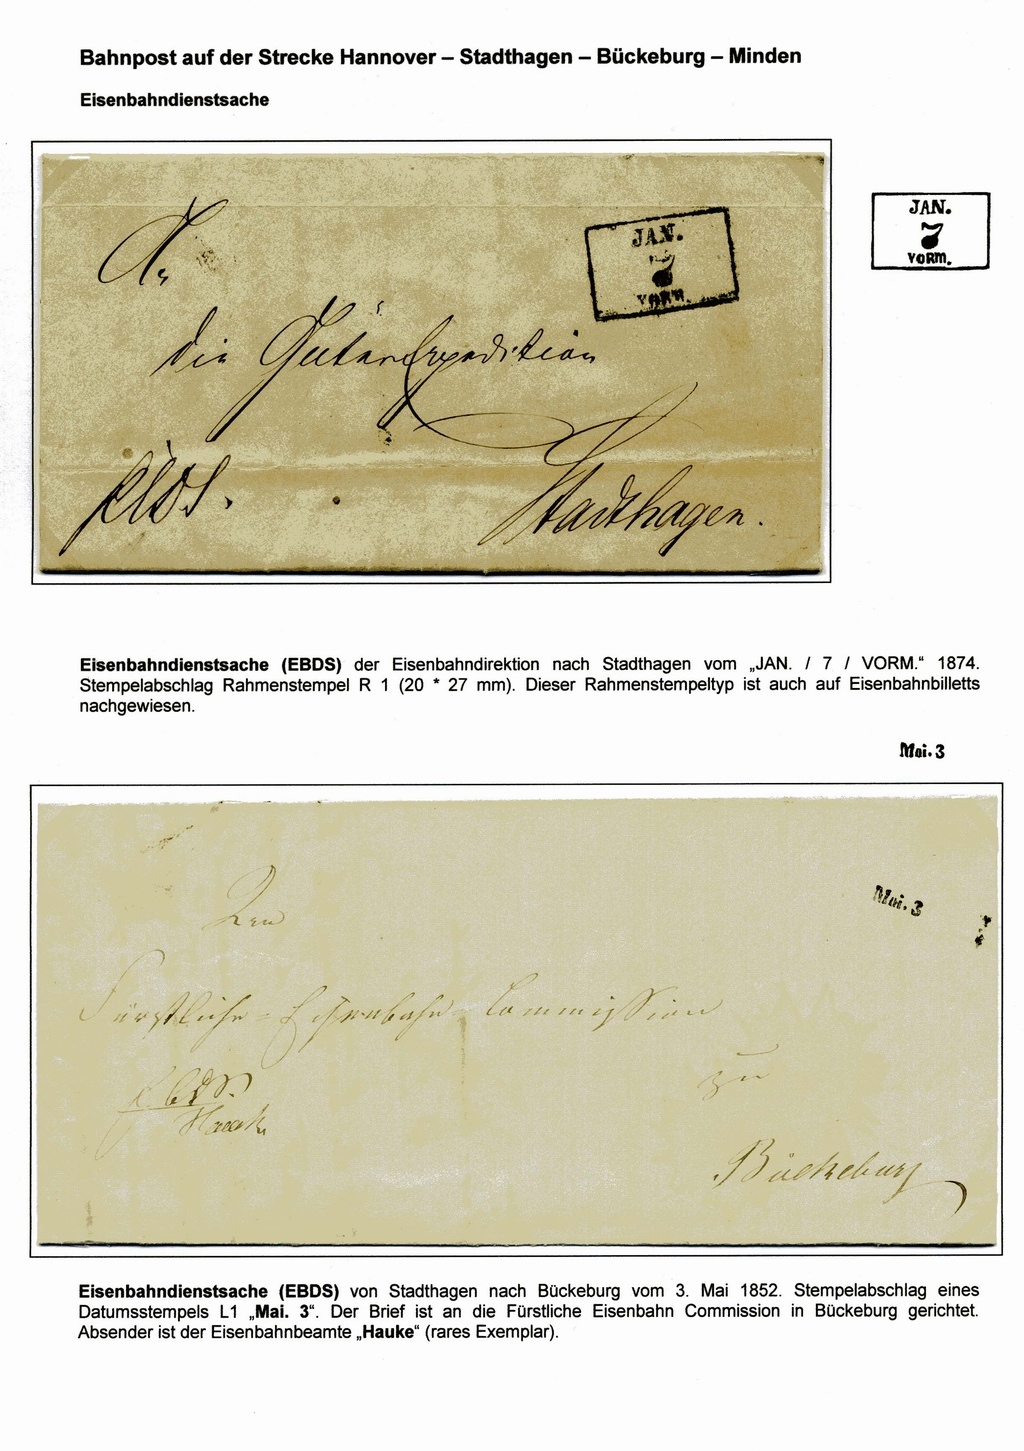 Bahnpost auf der Strecke Hannover – Stadthagen – Bückeburg – Minden
Eisenbahndienstsache
JAN.
7
VORM.
JAN.
7
VORM.
An
die Güter Expedition
EBDS.
Stadthagen.
Eisenbahndienstsache (EBDS) der Eisenbahndirektion nach Stadthagen vom „JAN. / 7 / VORM.“ 1874.
Stempelabschlag Rahmenstempel R 1 (20 * 27 mm). Dieser Rahmenstempeltyp ist auch auf Eisenbahnbilletts
nachgewiesen.
Mai. 3
Mai. 3
Fürstliche = Eisenbahn Commission
EBDS.
Hauke
zu
Bückeburg
Eisenbahndienstsache (EBDS) von Stadthagen nach Bückeburg vom 3. Mai 1852. Stempelabschlag eines
Datumsstempels L1 „Mai. 3“. Der Brief ist an die Fürstliche Eisenbahn Commission in Bückeburg gerichtet.
Absender ist der Eisenbahnbeamte „Hauke“ (rares Exemplar).